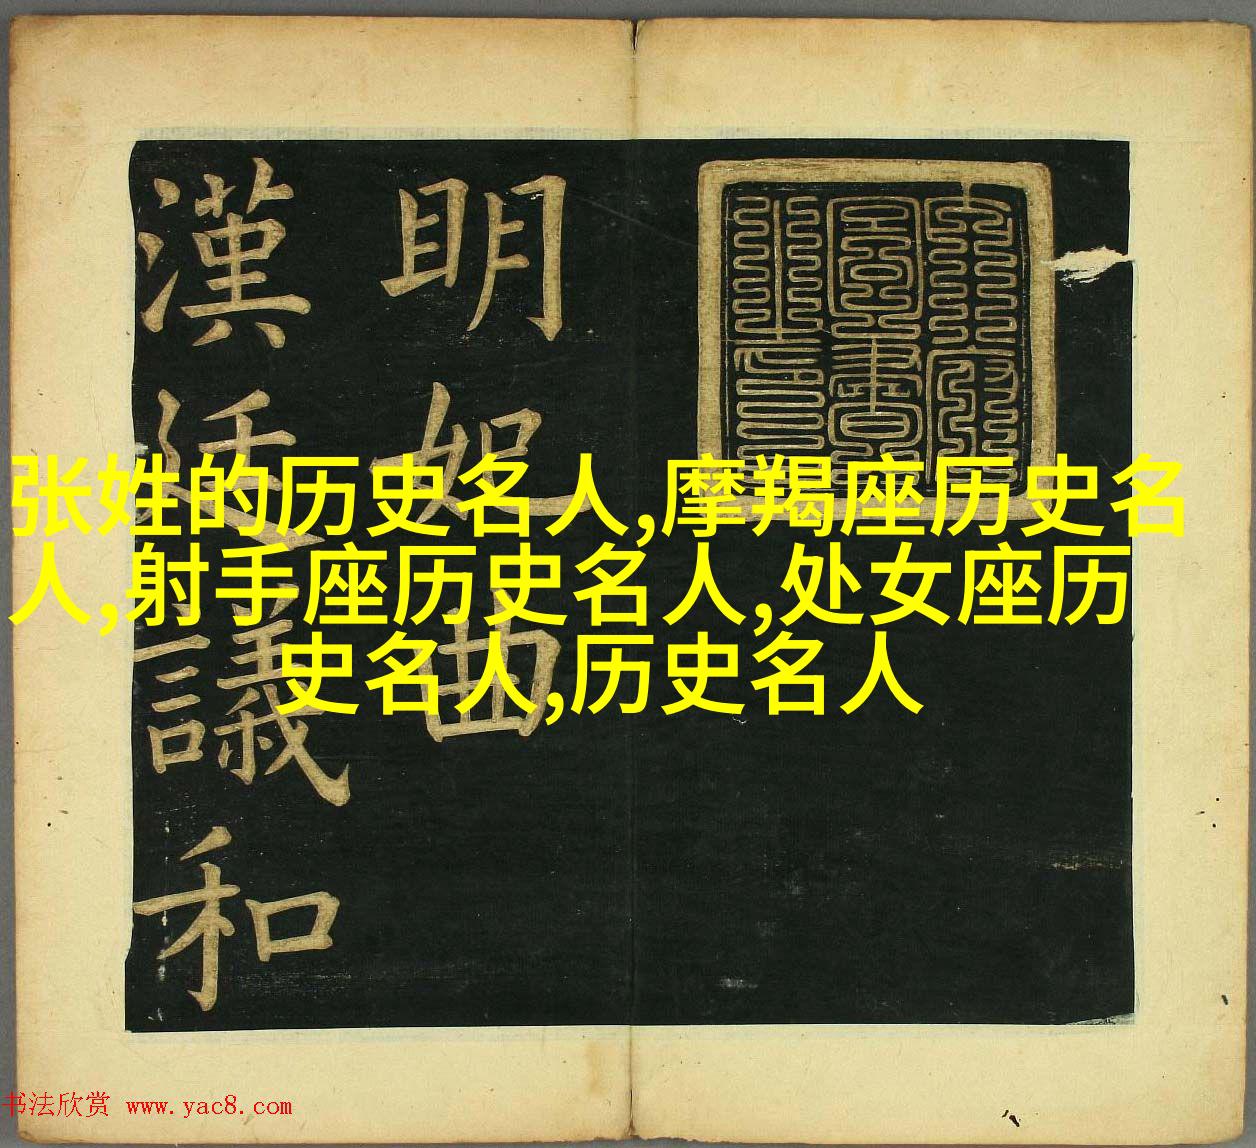 明妃曲
漢廷議和
张姓的历史名人,摩羯座历史名
人,射手座历史名人,处女座历
史名人,历史名人
书法欣赏 www.yac8.com